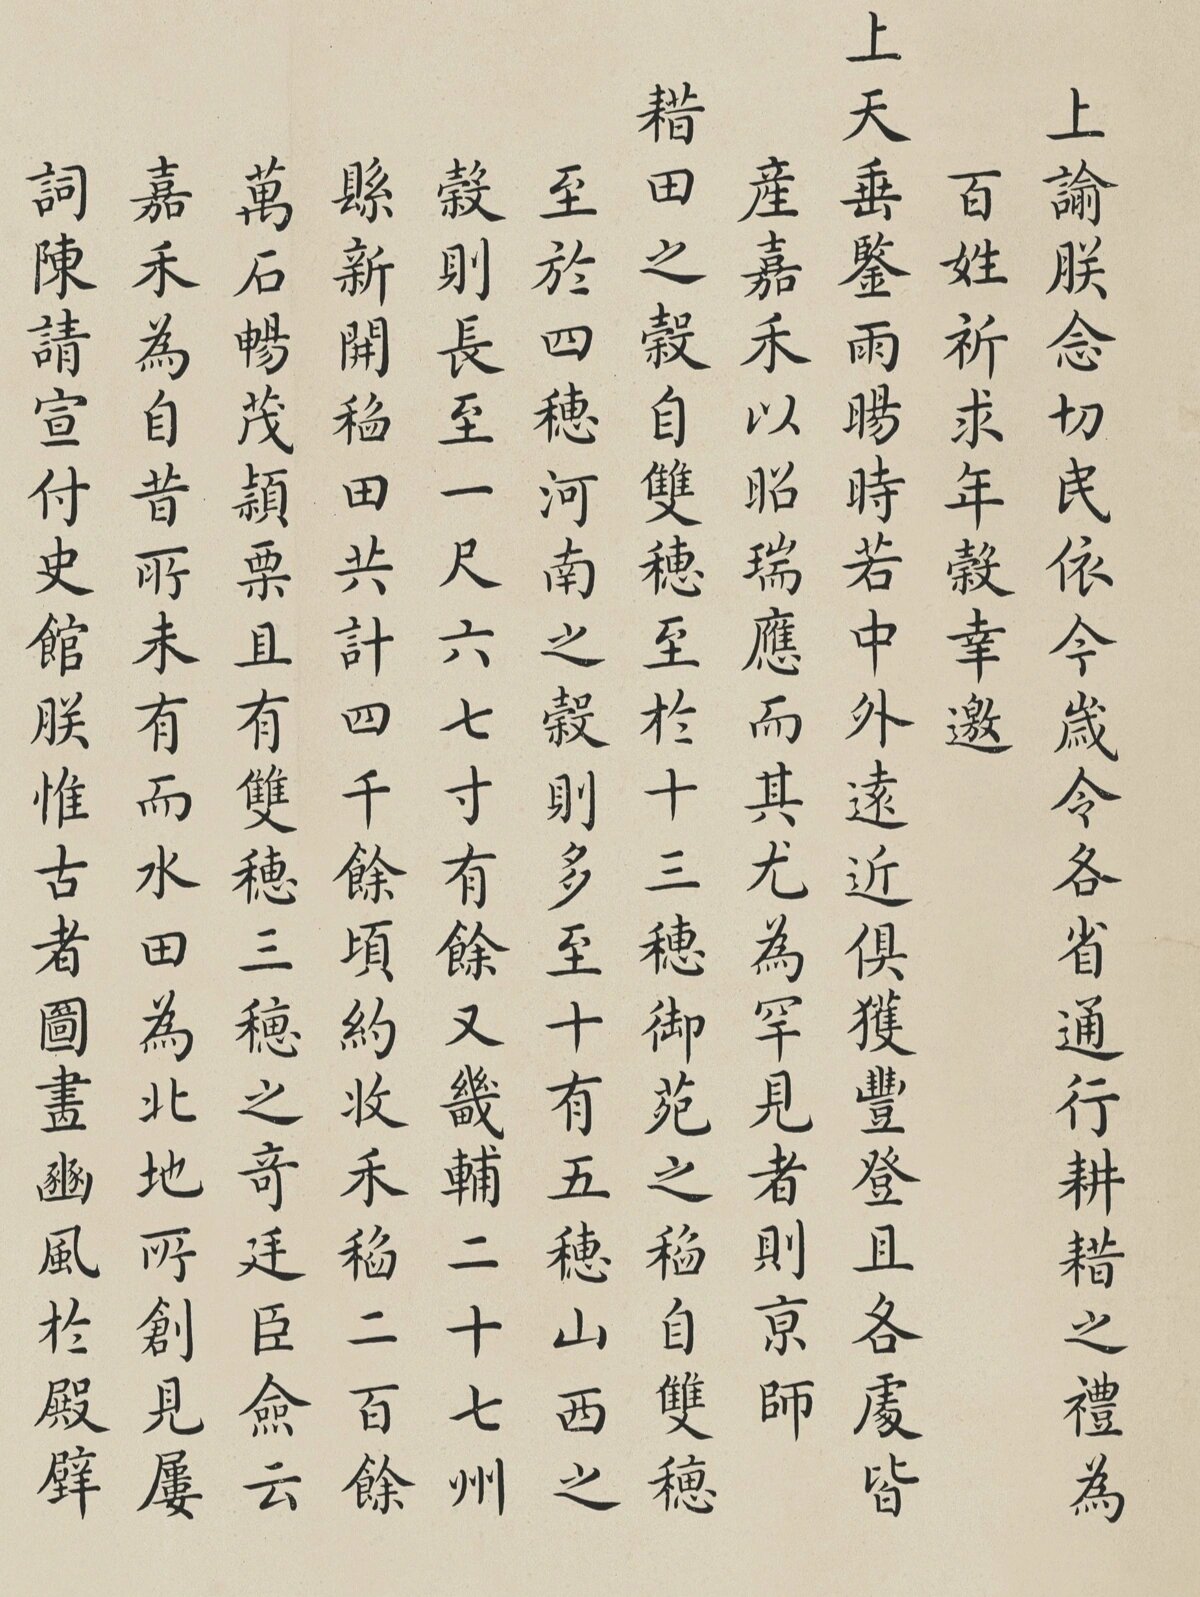 上諭朕念切民依今歲令各省通行耕耤之禮為
百姓祈求年穀幸邀
上天垂鑒雨暘時若中外遠近俱獲豐登且各處皆
產嘉禾以昭瑞應而其尤為罕見者則京師
耤田之穀自雙穗至於十三穗御苑之稻自雙穗
至於四穗河南之穀則多至十有五穗山西之
穀則長至一尺六七寸有餘又畿輔二十七州
縣新開稻田共計四千餘頃約收禾稻二百餘
萬石暢茂穎栗且有雙穗三穗之奇廷臣僉云
嘉禾為自昔所未有而水田為北地所創見屢
詞陳請宣付史館朕惟古者圖畫豳風於殿壁